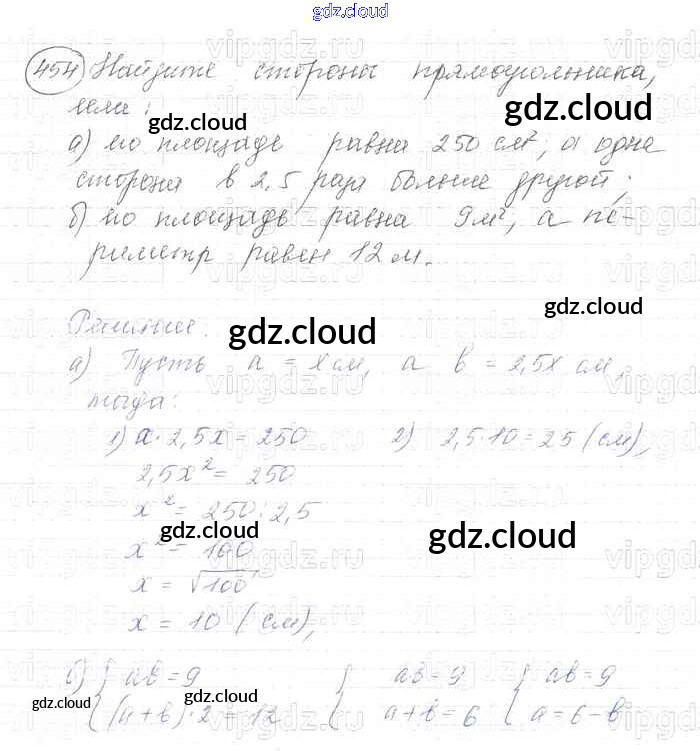 gdz.cloud
454 Найдите стороны прямоугольника,
если:
gdz.cloud
gdz.cloud
а) его площадь равна 250 см², а одна
сторона в 2,5 раза больше другой;
б) его площадь равна 9 м², а пе-
риметр равен 12 м.
gdz.cloud
Решение.
gdz.cloud
а) Пусть a = x см, а b = 2,5x см,
тогда:
1) x · 2,5x = 250 2) 2,5 · 10 = 25 (см),
2,5x² = 250
x² = 250 : 2,5
gdz.cloud
gdz.cloud
x² = 100
x = √100
x = 10 (см),
б) { ab = 9 { ab = 9 { ab = 9
(a+b) · 2 = 12 a + b = 6 a = 6 - b
gdz.cloud
gdz.cloud
gdz.cloud